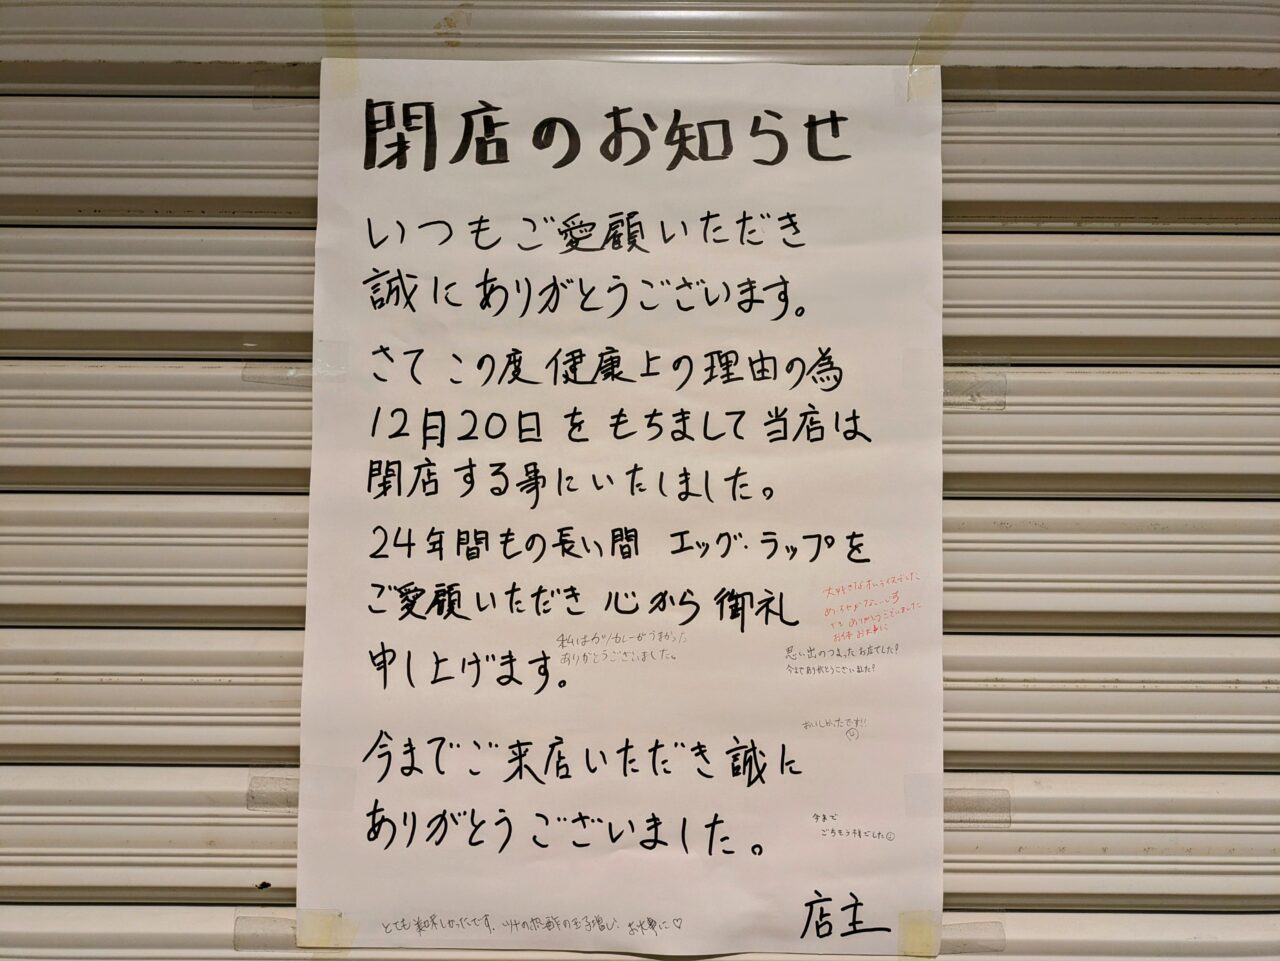 閉店のお知らせ
いつもご愛顧いただき
誠にありがとうございます。
さて この度 健康上の理由の為
12月20日を もちまして当店は
閉店する事にいたしました。
24年間もの長い間 エッグ・ラップを
ご愛顧いただき 心から御礼
申し上げます。
大好きなオムライスでした
ありがとうございました
お体 お大事に
私はカツカレーがうまかった
ありがとうございました。
思い出のつまったお店でした!
今までありがとうございました!
おいしかったです!!
今までご来店いただき誠に
ありがとうございました。
今まで
ごちそう様でした
店主
とても美味しかったです。 お大事に♡